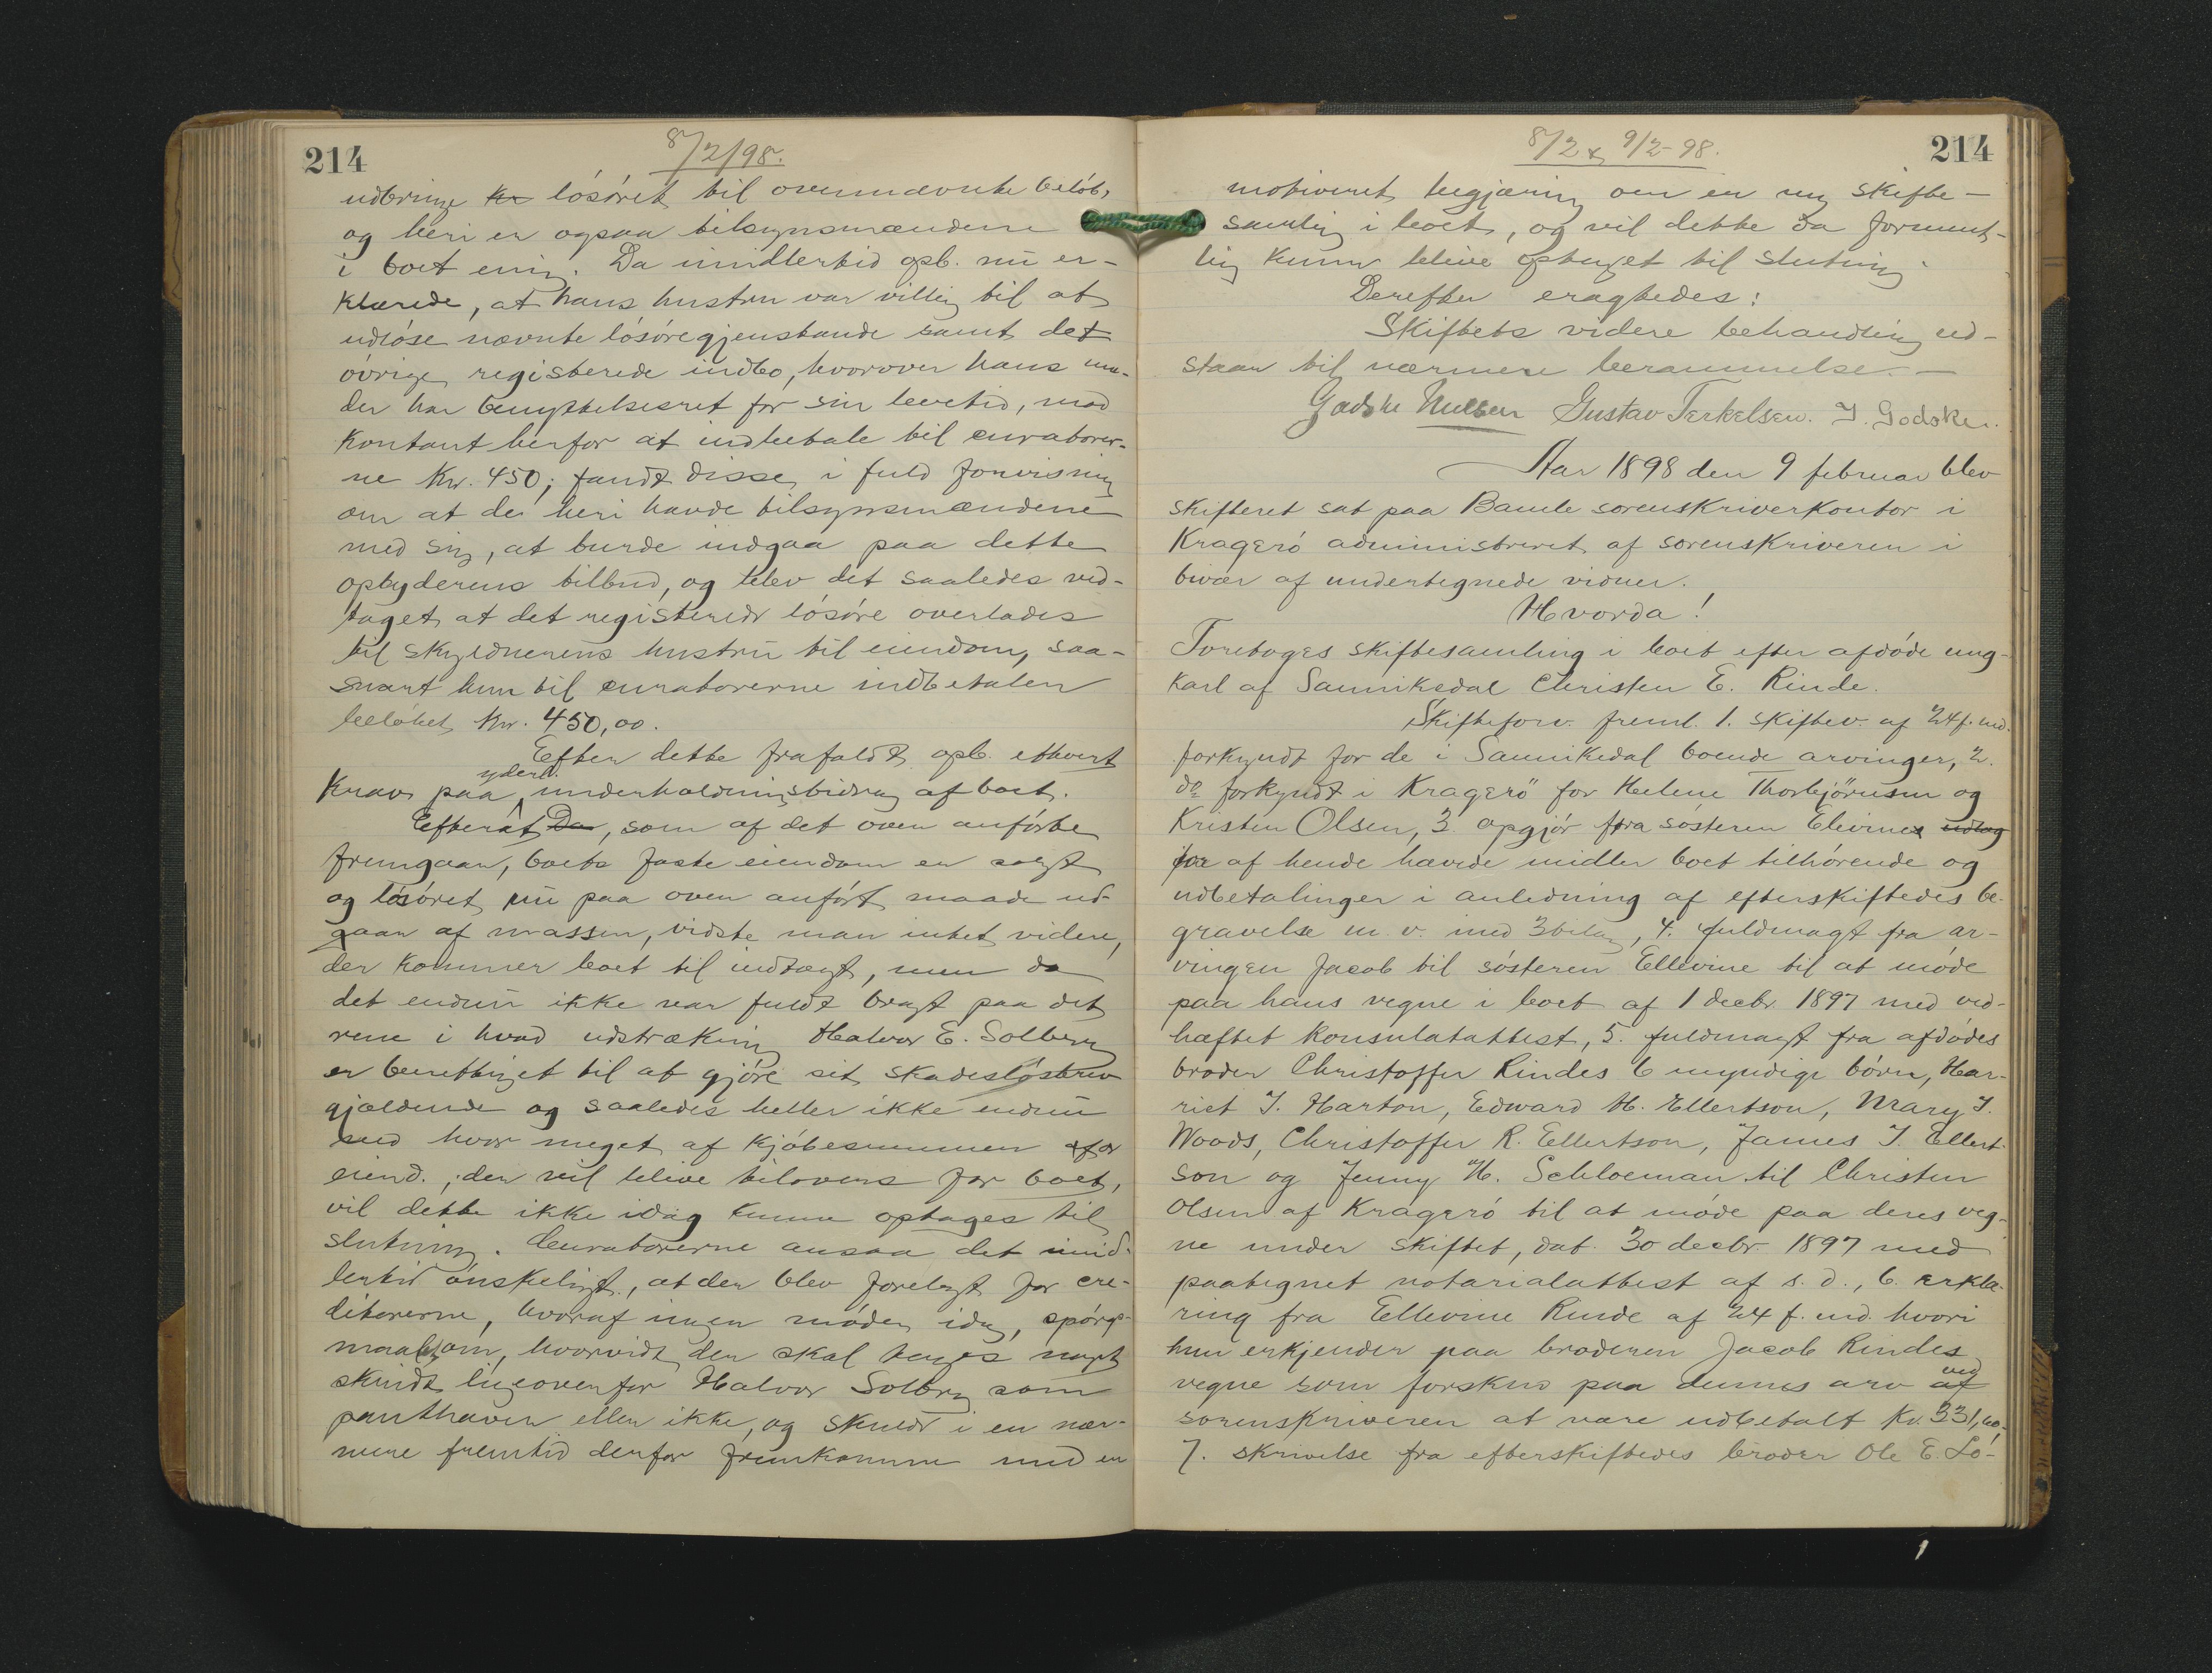 214
8/2/98.
udbringe kr løsøret til ovennævnte beløb,
og heri er ogsaa tilsynsmændene
i boet enig. Da imidlertid opb. nu er-
klærede, at hans hustru var villig til at
udløse nævnte løsøregjenstande samt det
øvrige registerede indbo, hvorover hans mo-
der har benyttelsesret for sin levetid, mod
kontant herfor at indbetale til curatorer-
ne Kr. 450; fandt disse, i fuld forvisning
om at de heri havde tilsynsmændene
med sig, at burde indgaa paa dette
opbyderens tilbud, og blev det saaledes ved-
taget, at det registerede løsøre overlades
til skyldnerens hustru til eiendom, saa-
snart hun til curatorerne indbetaler
beløbet, Kr. 450,00.
Efter dette frafaldt opb. ethvert
krav paa yderl. underholdningsbidrag af boet.
Efterat Da, som af det oven anførte
fremgaar, boets faste eiendom er solgt
og løsøret nu paa oven anført maade ud-
gaar af massen, vidste man intet videre,
der kommer boet til indtægt, men da
det endnu ikke var fuldt bragt paa det
rene i hvad udstrækning Halvor E. Solberg
er berettiget til at gjøre sit skadesløsbrev
gjældende og saaledes heller ikke endnu
hvor meget af kjøbesummen for
eiend., der vil blive tilovers for boet,
vil dette ikke idag kunne optages til
slutning. Curatorerne ansaa det imid-
lertid ønskeligt, at der blev forelagt for cre-
ditorerne, hvoraf ingen mødte idag, spørgs-
maal om, hvorvidt der skal tages
skridt ligeoverfor Halvor Solberg som
panthaver eller ikke, og skulde i en nær-
mere fremtid derfor fremkomme med en
8/2 & 9/2-98.
214
motiveret begjæring om en ny skifte-
samling i boet, og vil dette da forment-
lig kunne blive optaget til slutning.
Derefter eragtedes:
Skiftets videre behandling ud-
staar til nærmere berammelse.—
Godske Nielsen Gustav Terkelsen. J. Godske.
Aar 1898 den 9 februar blev
skifteret sat paa Bamle sorenskriverkontor i
Kragerø administreret af sorenskriveren i
bivær af undertegnede vidner.
Hvorda!
Foretoges skiftesamling i boet efter afdøde ung-
karl af Sannikedal Christen E. Rinde.
Skifteforv. freml. 1. skiftev. af 24 f. md.
forkyndt for de i Sannikedal boende arvinger, 2.
do forkyndt i Kragerø for Helene Thorbjørnsen og
Kristen Olsen, 3. opgjør fra søsteren Elevine udlag
for af hende hævede midler boet tilhørende og
udbetalinger i anledning af efterskiftedes be-
gravelse m. v. med 3 bilag, 4. fuldmagt fra ar-
vingen Jacob til søsteren Ellevine til at møde
paa hans vegne i boet af 1 decbr. 1897 med ved-
hæftet konsulatattest, 5. fuldmagt fra afdødes
broder Christoffer Rindes 6 myndige børn, Har-
riet J. Harton, Edward H. Ellertson, Mary J.
Woods, Christoffer R. Ellertson, James J. Ellert-
son og Jenny H. Schloeman til Christen
Olsen af Kragerø til at møde paa deres veg-
ne under skiftet, dat. 30 decbr. 1897 med
paategnet notarialattest af s. d., 6. erklæ-
ring fra Ellevine Rinde af 24 f. md. hvori
hun erkjender paa broderen Jacob Rindes
vegne som forskud paa dennes arv af ved
sorenskriveren at være udbetalt Kr. 331,60.
7. skrivelse fra efterskiftedes broder Ole E. Lø-